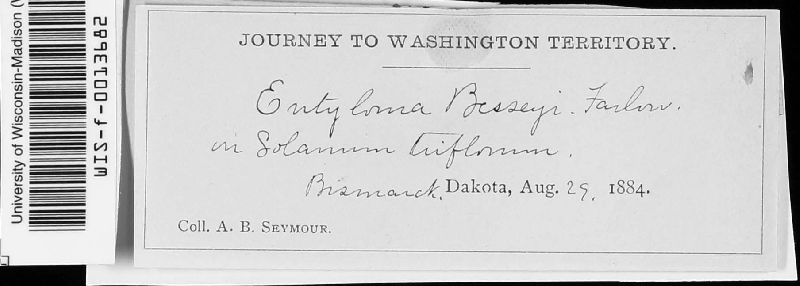 University of Wisconsin-Madison (
WIS-f-0013682
JOURNEY TO WASHINGTON TERRITORY.
Entyloma Besseyi. Farlow.
on Solanum triflorum.
Bismarck, Dakota, Aug. 29, 1884.
Coll. A. B. SEYMOUR.